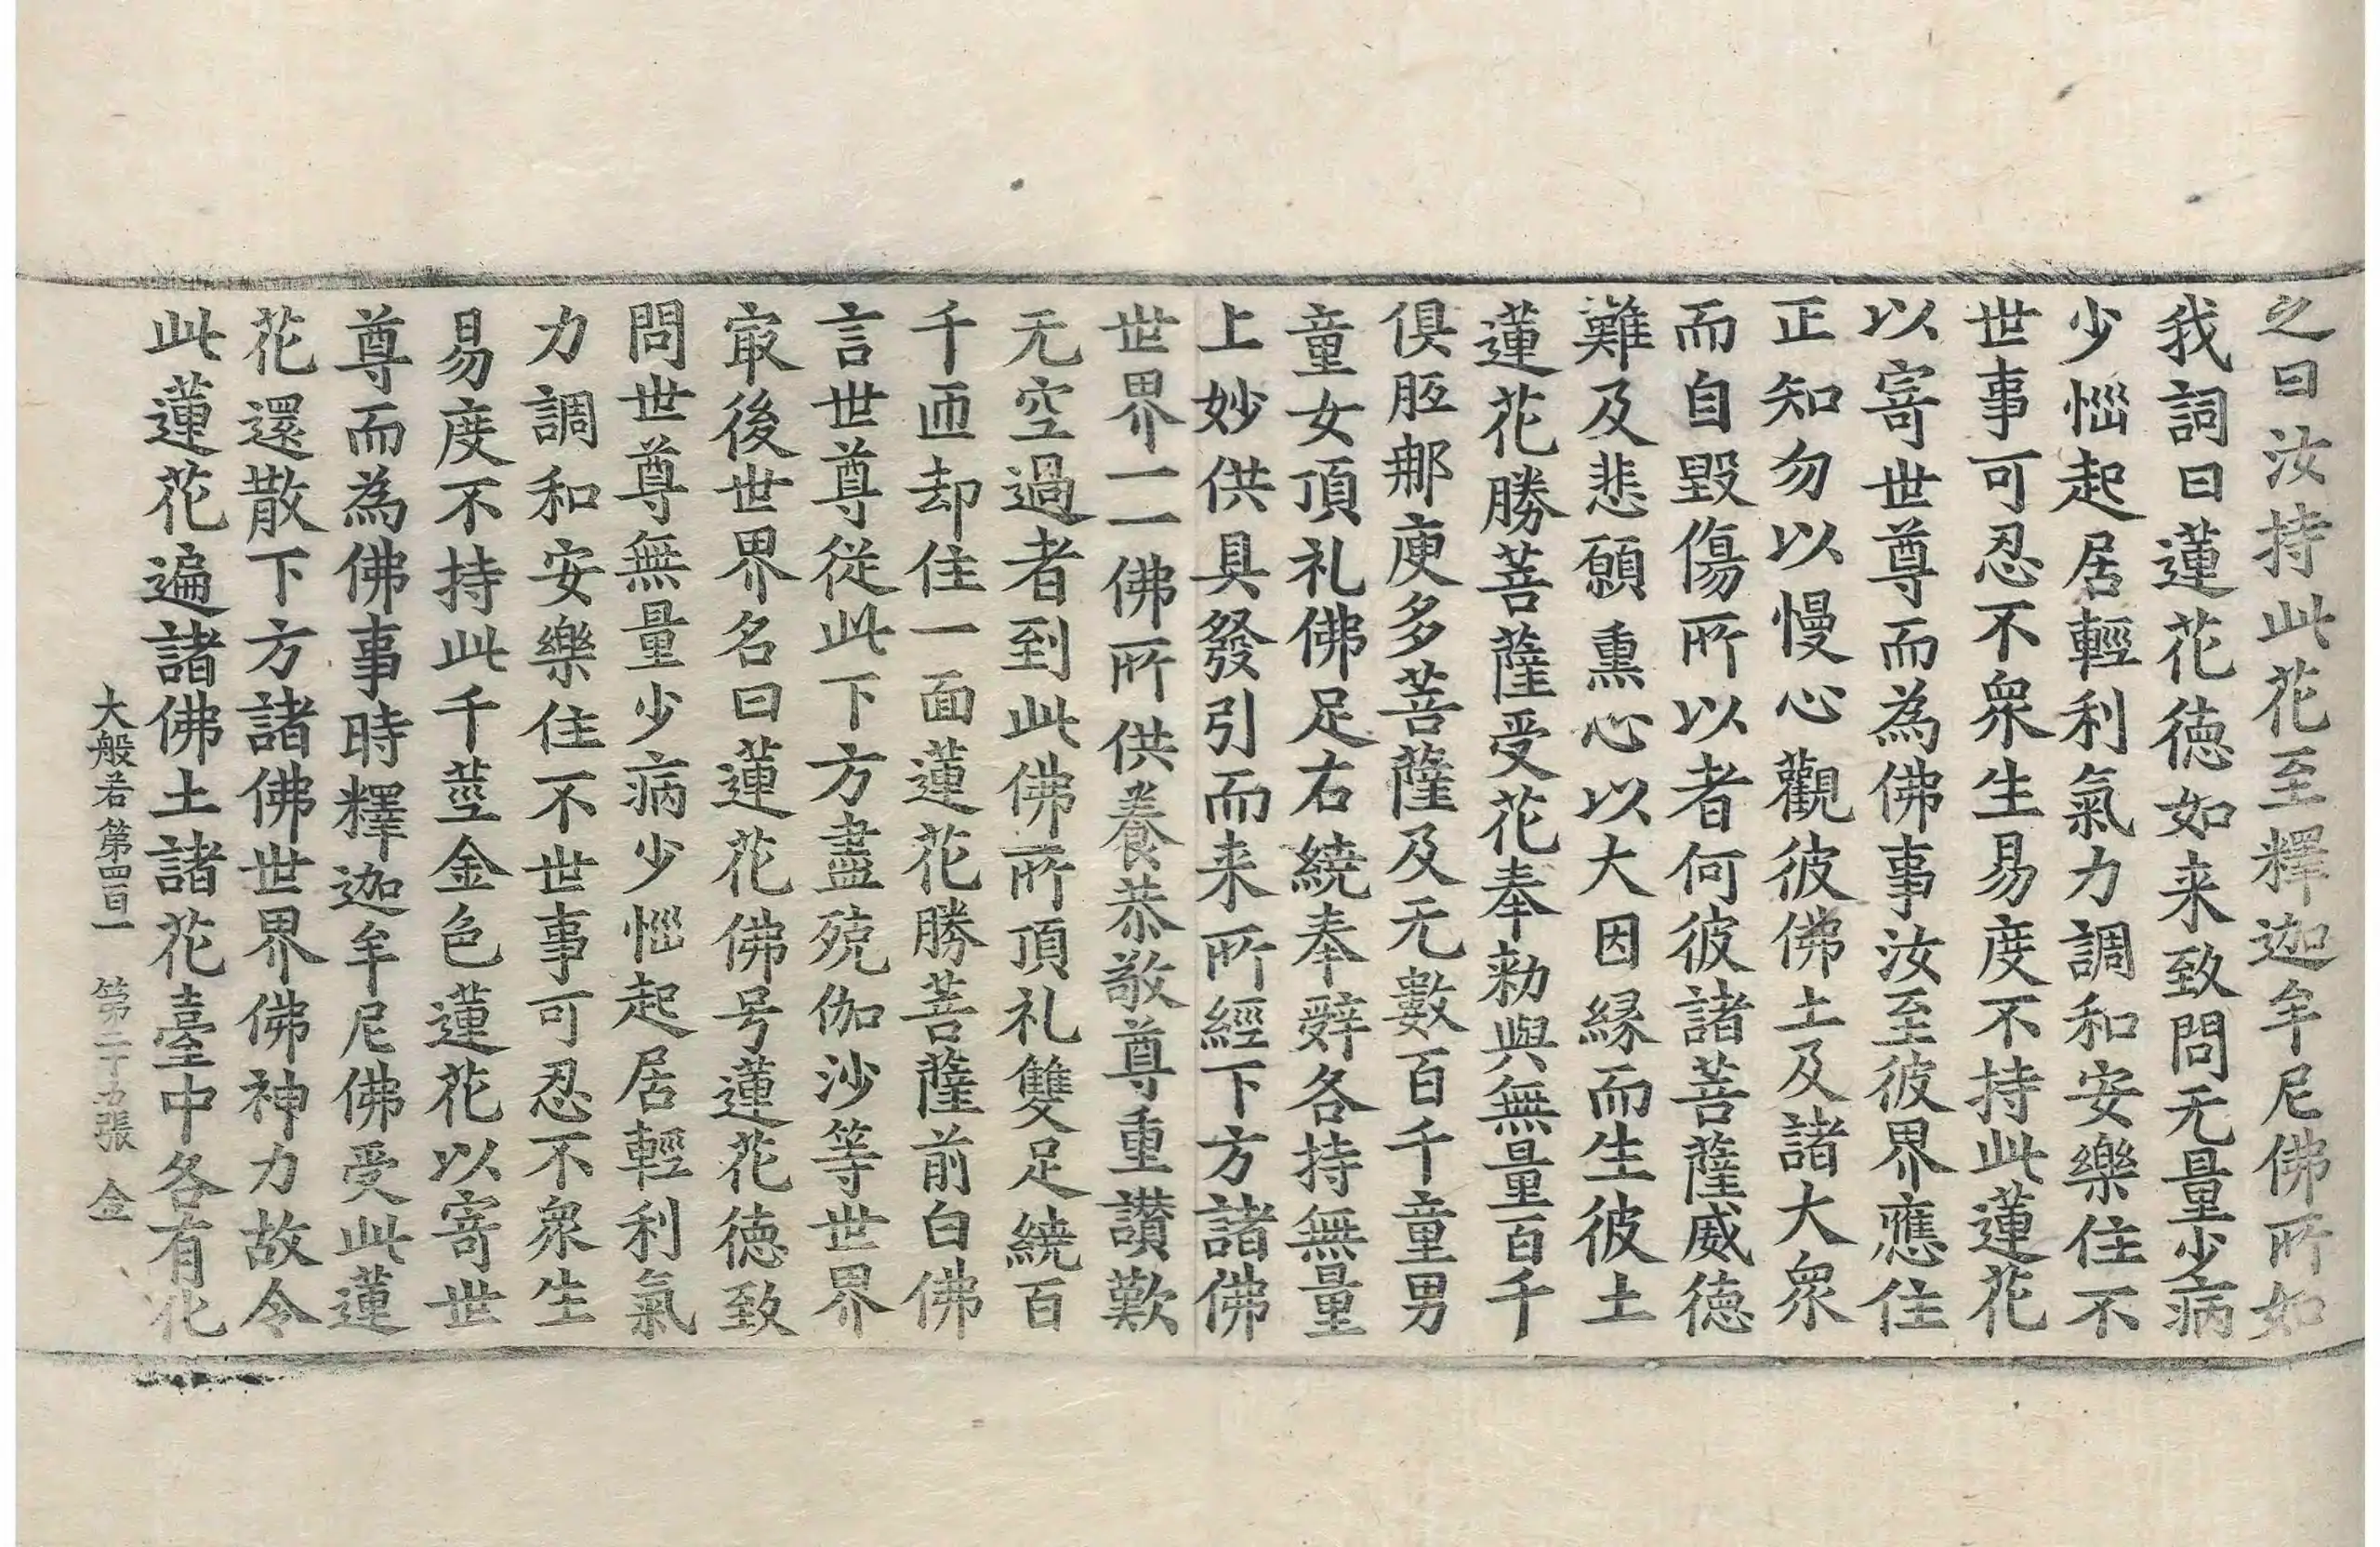 之曰汝持此花至釋迦牟尼佛所如
我詞曰蓮花德如来致問无量少病
少惱起居輕利氣力調和安樂住不
世事可忍不衆生易度不持此蓮花
以寄世尊而為佛事汝至彼界應住
正知勿以慢心觀彼佛土及諸大衆
而自毀傷所以者何彼諸菩薩威德
難及悲願熏心以大因緣而生彼土
蓮花勝菩薩受花奉勑與無量百千
俱胝那庾多菩薩及无數百千童男
童女頂礼佛足右繞奉辭各持無量
上妙供具發引而来所經下方諸佛
世界一一佛所供養恭敬尊重讃歎
无空過者到此佛所頂礼雙足繞百
千迊却住一面蓮花勝菩薩前白佛
言世尊從此下方盡殑伽沙等世界
㝡後世界名曰蓮花佛号蓮花德致
問世尊無量少病少惱起居輕利氣
力調和安樂住不世事可忍不衆生
易度不持此千莖金色蓮花以寄世
尊而為佛事時釋迦牟尼佛受此蓮
花還散下方諸佛世界佛神力故令
此蓮花遍諸佛土諸花臺中各有化
大般若第四百一 第二十 張 金